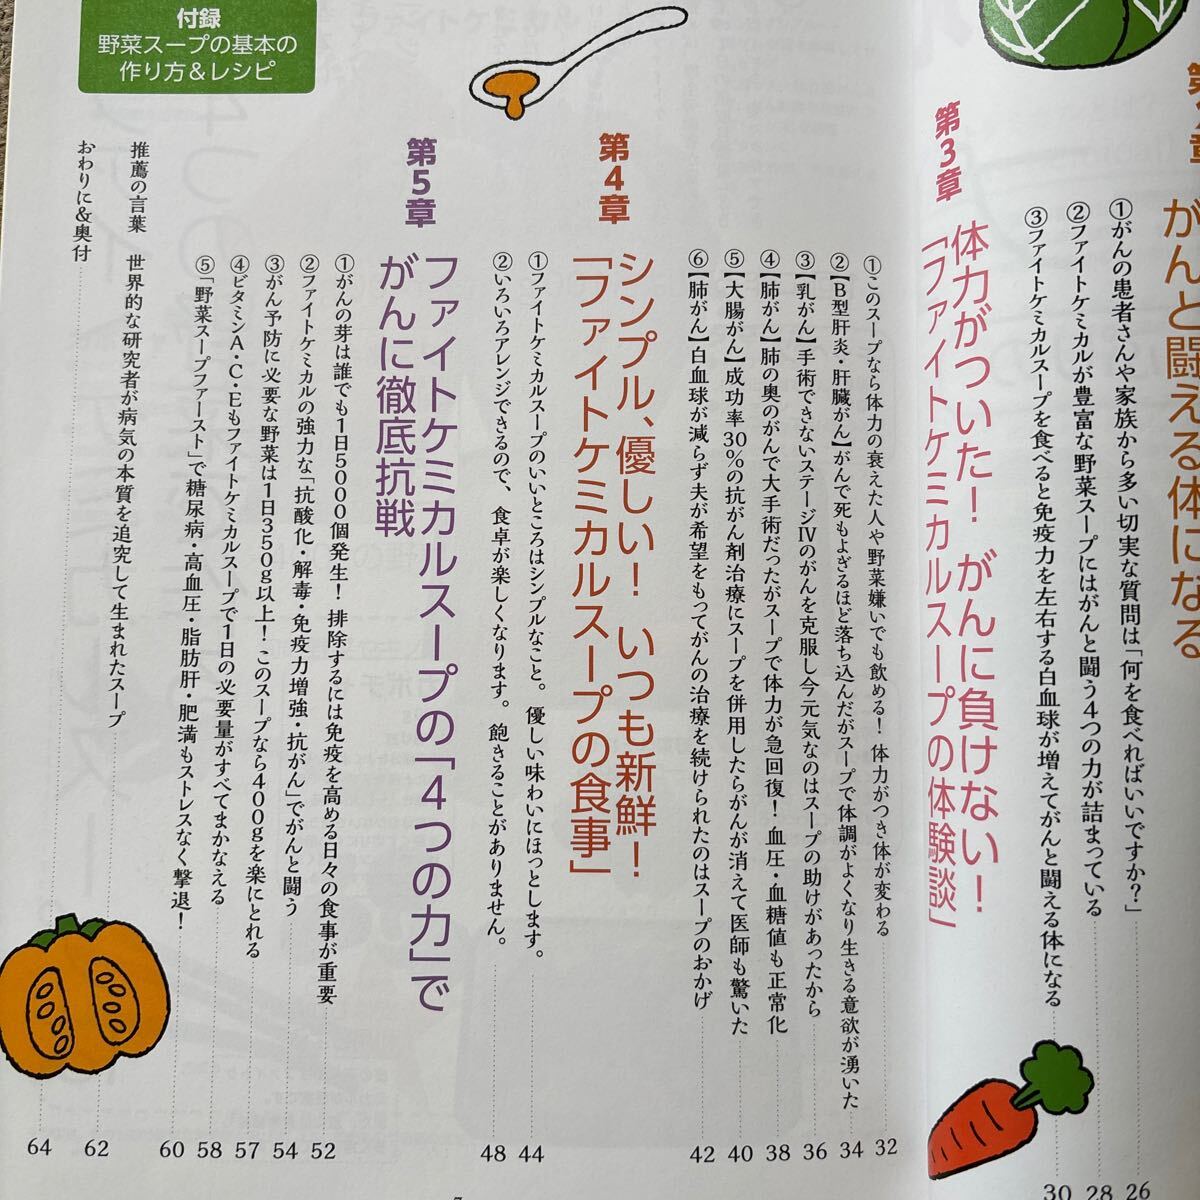 がんと闘える体になる
①がんの患者さんや家族から多い切実な質問は「何を食べればいいですか?」
26
②ファイトケミカルが豊富な野菜スープにはがんと闘う4つの力が詰まっている
28
③ファイトケミカルスープを食べると免疫力を左右する白血球が増えてがんと闘える体になる
30
第3章
体力がついた! がんに負けない!
「ファイトケミカルスープの体験談」
①このスープなら体力の衰えた人や野菜嫌いでも飲める! 体力がつき体が変わる
32
②【B型肝炎・肝臓がん】がんで死もよぎるほど落ち込んだがスープで体調がよくなり生きる意欲が湧いた
34
③【乳がん】手術できないステージⅣのがんを克服し今元気なのはスープの助けがあったから
36
④【肺がん】肺の奥のがんで大手術だったがスープで体力が急回復! 血圧・血糖値も正常化
38
⑤【大腸がん】成功率30%の抗がん剤治療にスープを併用したらがんが消えて医師も驚いた
40
⑥【肺がん】白血球が減らず夫が希望をもってがんの治療を続けられたのはスープのおかげ
42
第4章
シンプル、優しい! いつも新鮮!
「ファイトケミカルスープの食事」
①ファイトケミカルスープのいいところはシンプルなこと。優しい味わいにほっとします。
44
②いろいろアレンジできるので、食卓が楽しくなります。飽きることがありません。
48
第5章
ファイトケミカルスープの「4つの力」で
がんに徹底抗戦
①がんの芽は誰でも1日5000個発生! 排除するには免疫を高める日々の食事が重要
52
②ファイトケミカルの強力な「抗酸化・解毒・免疫力増強・抗がん」でがんと闘う
54
③がん予防に必要な野菜は1日350g以上! このスープなら400gを楽にとれる
57
④ビタミンA・C・Eもファイトケミカルスープで1日の必要量がすべてまかなえる
58
⑤「野菜スープファースト」で糖尿病・高血圧・脂肪肝・肥満もストレスなく撃退!
60
推薦の言葉 世界的な研究者が病気の本質を追究して生まれたスープ
62
おわりに&奥付
64
付録
野菜スープの基本の
作り方&レシピ